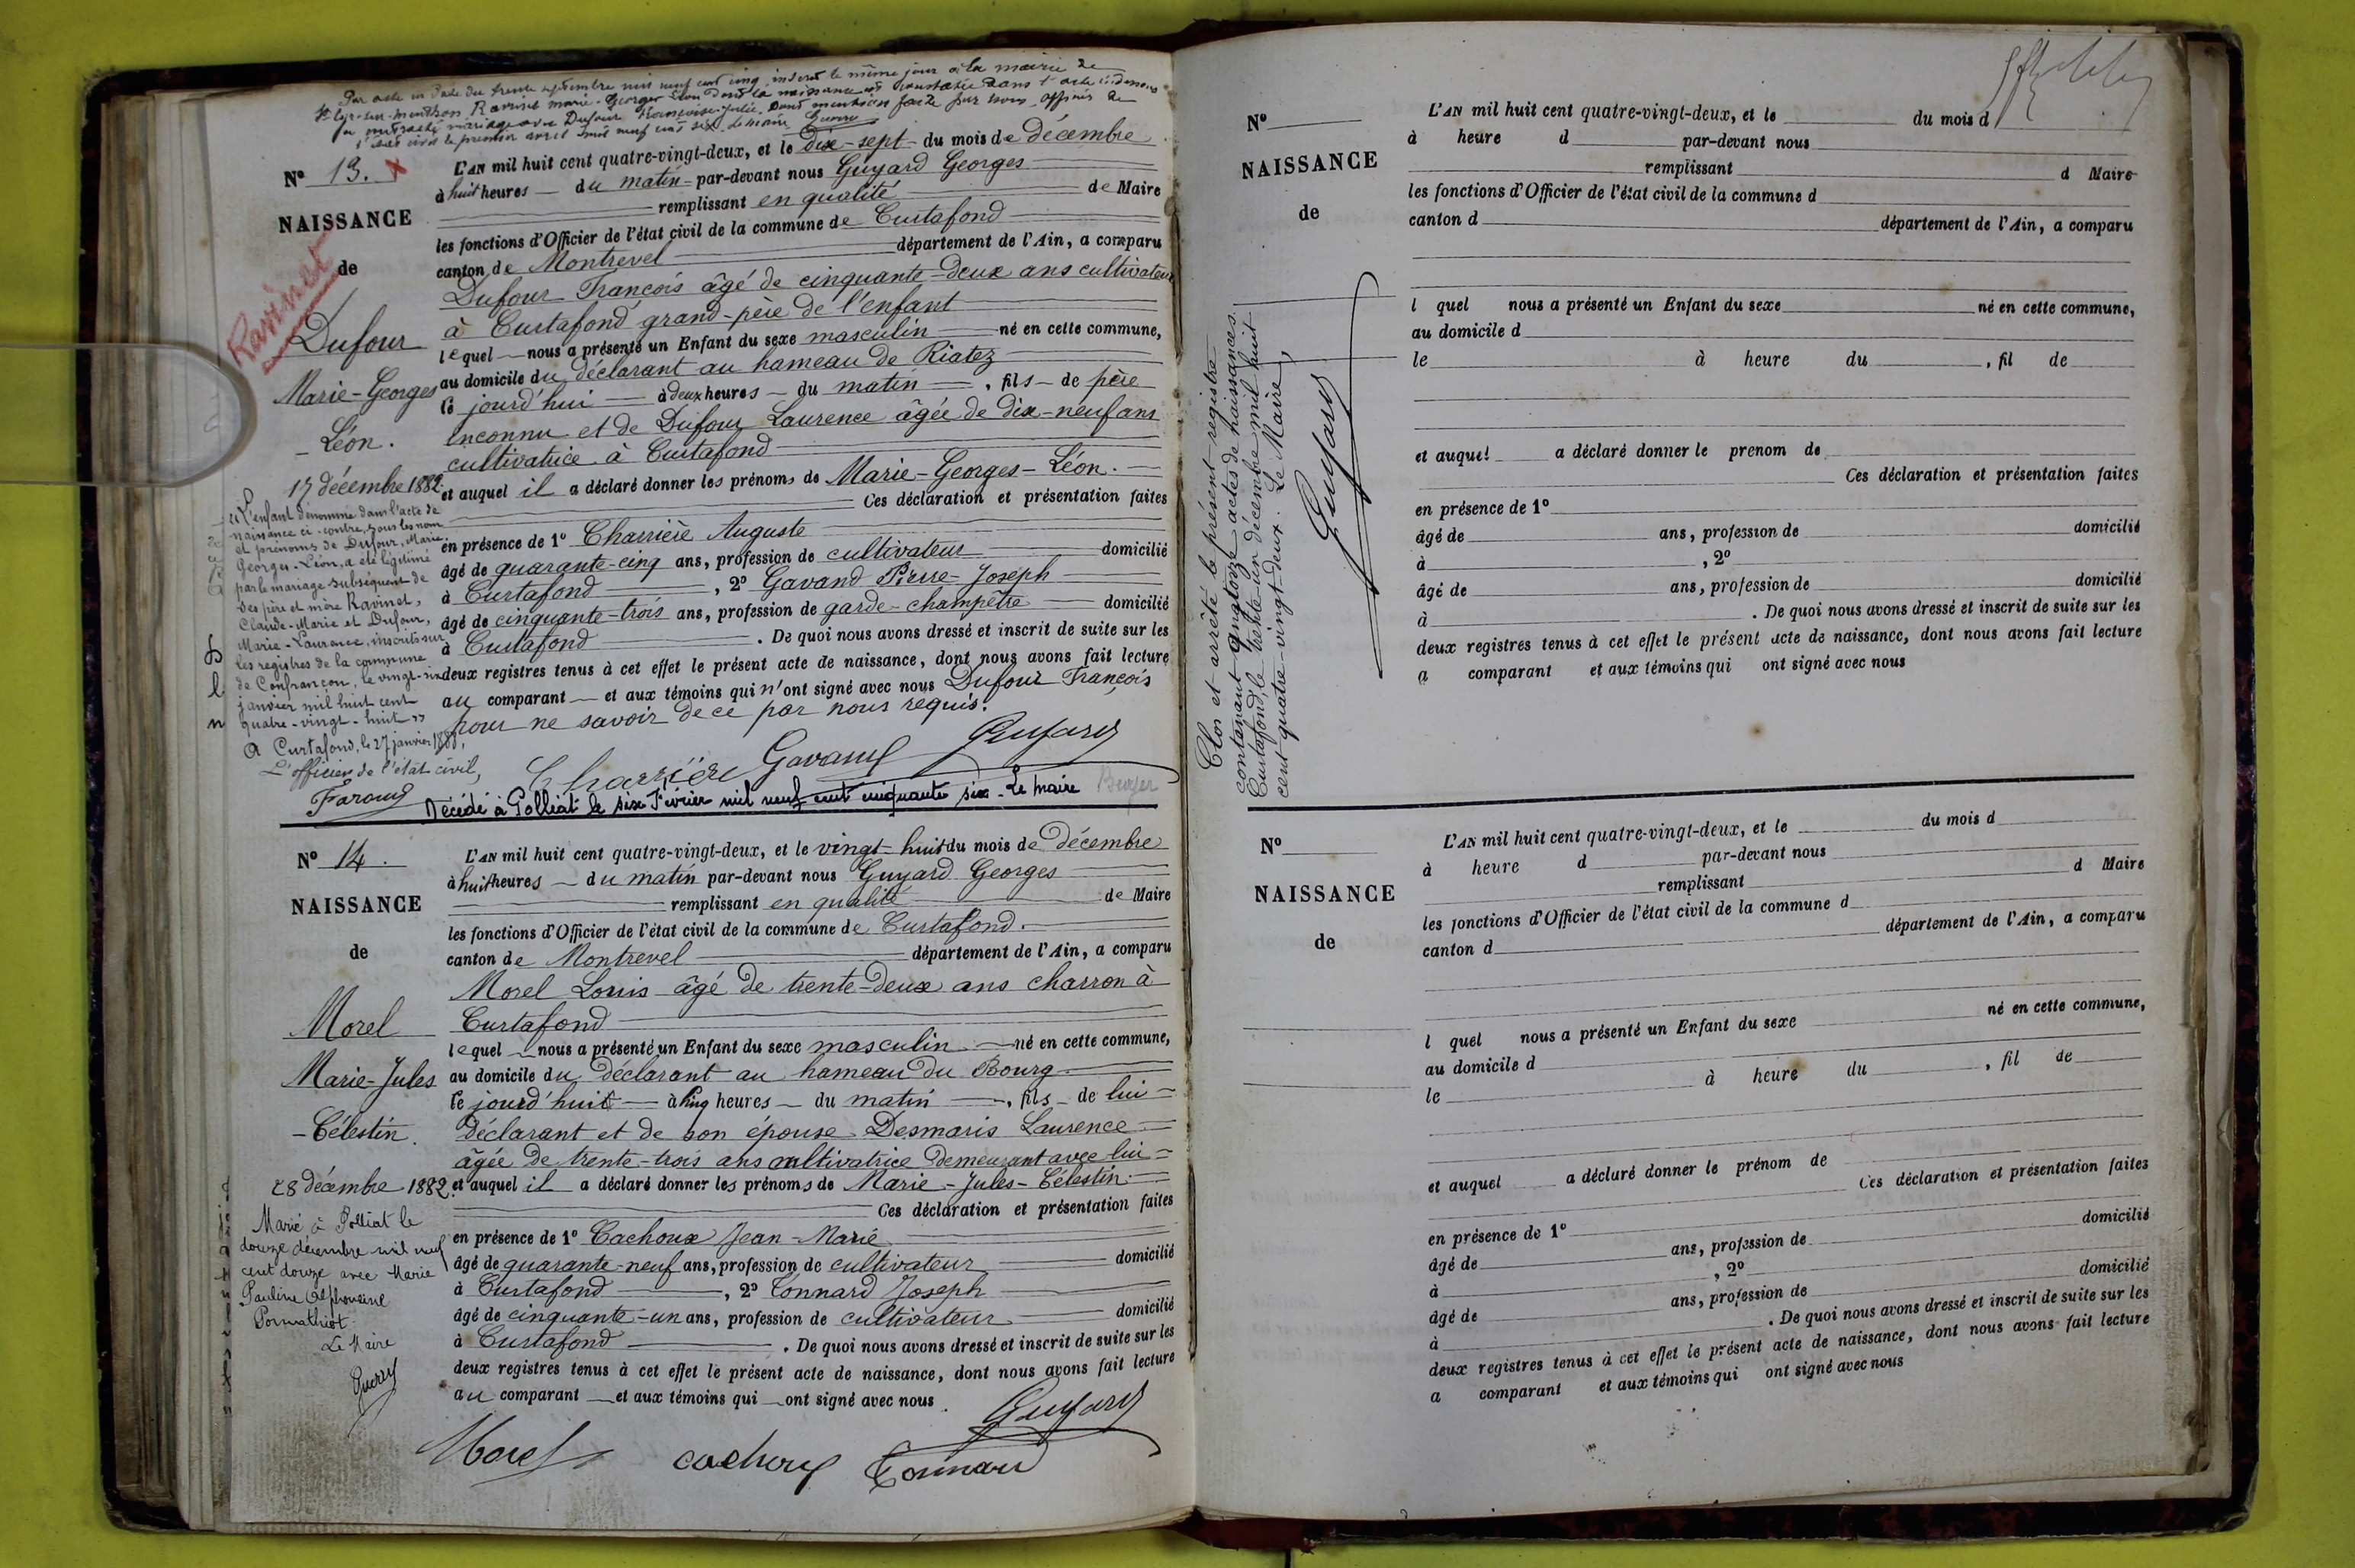 Par acte en date du trente septembre mil neuf cent cinq, inscrit le même jour à la mairie de
St Cyr-sur-Menthon Ravinet Marie-Georges Léon dont la naissance est constatée dans l'acte ci-dessous
a contracté mariage avec Dufour Françoise-Julie. Dont mention faite par nous, officier de
l'état civil le premier avril mil neuf cent six. Le maire
Nº 13.
NAISSANCE
de
Ravinet
Dufour
Marie-Georges
-Léon.
17 décembre 1882
"L'enfant dénommé dans l'acte de
naissance ci-contre, sous les nom
et prénoms de Dufour, Marie
Georges-Léon, a été légitimé
par le mariage subséquent de
ses père et mère Ravinet,
Claude-Marie et Dufour,
Marie-Laurence, inscrit sur
les registres de la commune
de Confrançon, le vingt-six
janvier mil huit cent
quatre-vingt-huit"
A Curtafond, le 27 janvier 1888,
L'officier de l'état civil,
Faroud
L'AN mil huit cent quatre-vingt-deux, et le dix-sept du mois de décembre
à huit heures du matin par-devant nous Guyard Georges
remplissant en qualité de Maire
les fonctions d'Officier de l'état civil de la commune de Curtafond
canton de Montrevel département de l'Ain, a comparu
Dufour François âgé de cinquante-deux ans cultivateur
à Curtafond grand-père de l'enfant
lequel nous a présenté un Enfant du sexe masculin né en cette commune,
au domicile du déclarant au hameau de Riatez
le jourd'hui à deux heures du matin, fils de père
inconnu et de Dufour Laurence âgée de dix-neuf ans
cultivatrice à Curtafond
et auquel il a déclaré donner les prénoms de Marie-Georges-Léon.
Ces déclaration et présentation faites
en présence de 1º Charrière Auguste
âgé de quarante-cinq ans, profession de cultivateur domicilié
à Curtafond, 2º Gavand Pierre-Joseph
âgé de cinquante-trois ans, profession de garde-champêtre domicilié
à Curtafond. De quoi nous avons dressé et inscrit de suite sur les
deux registres tenus à cet effet le présent acte de naissance, dont nous avons fait lecture
au comparant et aux témoins qui n'ont signé avec nous Dufour François
pour ne savoir de ce par nous requis.
Charrière Gavand Guyard
Décédé à Polliat le six Février mil neuf cent cinquante six. Le maire Berger
Nº 14.
NAISSANCE
de
Morel
Marie-Jules
-Célestin.
28 décembre 1882.
Marié à Polliat le
douze décembre mil neuf
cent douze avec Marie
Pauline Alphonsine
Pormathiot
Le Maire
L'AN mil huit cent quatre-vingt-deux, et le vingt-huit du mois de décembre
à huit heures du matin par-devant nous Guyard Georges
remplissant en qualité de Maire
les fonctions d'Officier de l'état civil de la commune de Curtafond.
canton de Montrevel département de l'Ain, a comparu
Morel Louis âgé de trente-deux ans charron à
Curtafond
lequel nous a présenté un Enfant du sexe masculin né en cette commune,
au domicile du déclarant au hameau du Bourg
le jourd'huit à cinq heures du matin, fils de lui
déclarant et de son épouse Desmaris Laurence
âgée de trente-trois ans cultivatrice demeurant avec lui
et auquel il a déclaré donner les prénoms de Marie-Jules-Célestin.
Ces déclaration et présentation faites
en présence de 1º Cachoux Jean-Marie
âgé de quarante-neuf ans, profession de cultivateur domicilié
à Curtafond, 2º Connard Joseph
âgé de cinquante-un ans, profession de cultivateur domicilié
à Curtafond. De quoi nous avons dressé et inscrit de suite sur les
deux registres tenus à cet effet le présent acte de naissance, dont nous avons fait lecture
au comparant et aux témoins qui ont signé avec nous.
Guyard
Morel cachoux Connard
Clos et arrêté le présent registre
contenant quatorze actes de naissances.
Curtafond, le trente-un décembre mil huit
cent quatre-vingt-deux. Le Maire,
Guyard
Nº
NAISSANCE
de
L'AN mil huit cent quatre-vingt-deux, et le du mois d
à heure d par-devant nous
remplissant d Maire
les fonctions d'Officier de l'état civil de la commune d
canton d département de l'Ain, a comparu
l quel nous a présenté un Enfant du sexe né en cette commune,
au domicile d
le à heure du , fil de
et auquel a déclaré donner le prenom de
Ces déclaration et présentation faites
en présence de 1º
âgé de ans, profession de domicilié
à , 2º
âgé de ans, profession de domicilié
à . De quoi nous avons dressé et inscrit de suite sur les
deux registres tenus à cet effet le présent acte de naissance, dont nous avons fait lecture
a comparant et aux témoins qui ont signé avec nous
Nº
NAISSANCE
de
L'AN mil huit cent quatre-vingt-deux, et le du mois d
à heure d par-devant nous
remplissant d Maire
les fonctions d'Officier de l'état civil de la commune d
canton d département de l'Ain, a comparu
l quel nous a présenté un Enfant du sexe né en cette commune,
au domicile d
le à heure du , fil de
et auquel a déclaré donner le prénom de
Ces déclaration et présentation faites
en présence de 1º
âgé de ans, profession de domicilié
à , 2º
âgé de ans, profession de domicilié
à . De quoi nous avons dressé et inscrit de suite sur les
deux registres tenus à cet effet le présent acte de naissance, dont nous avons fait lecture
a comparant et aux témoins qui ont signé avec nous